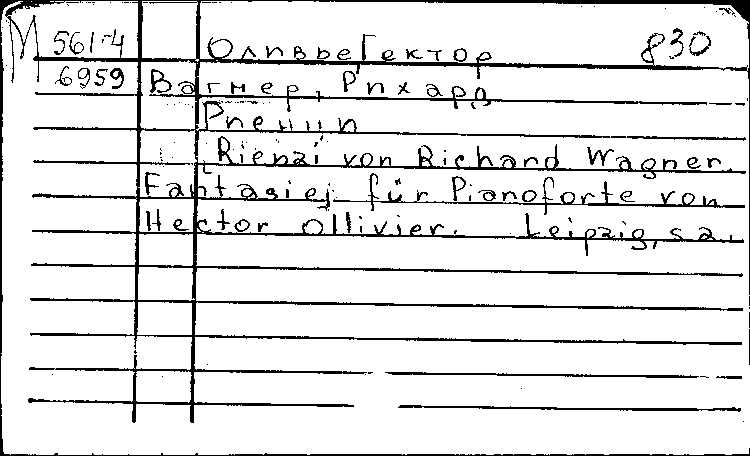 М 561-4 Оливье Гектор 830
6959 Вагнер, Рихард
Риенци
[Rienzi von Richard Wagner.
Fantasie] für Pianoforte von
Hector Ollivier. Leipzig, s.a.